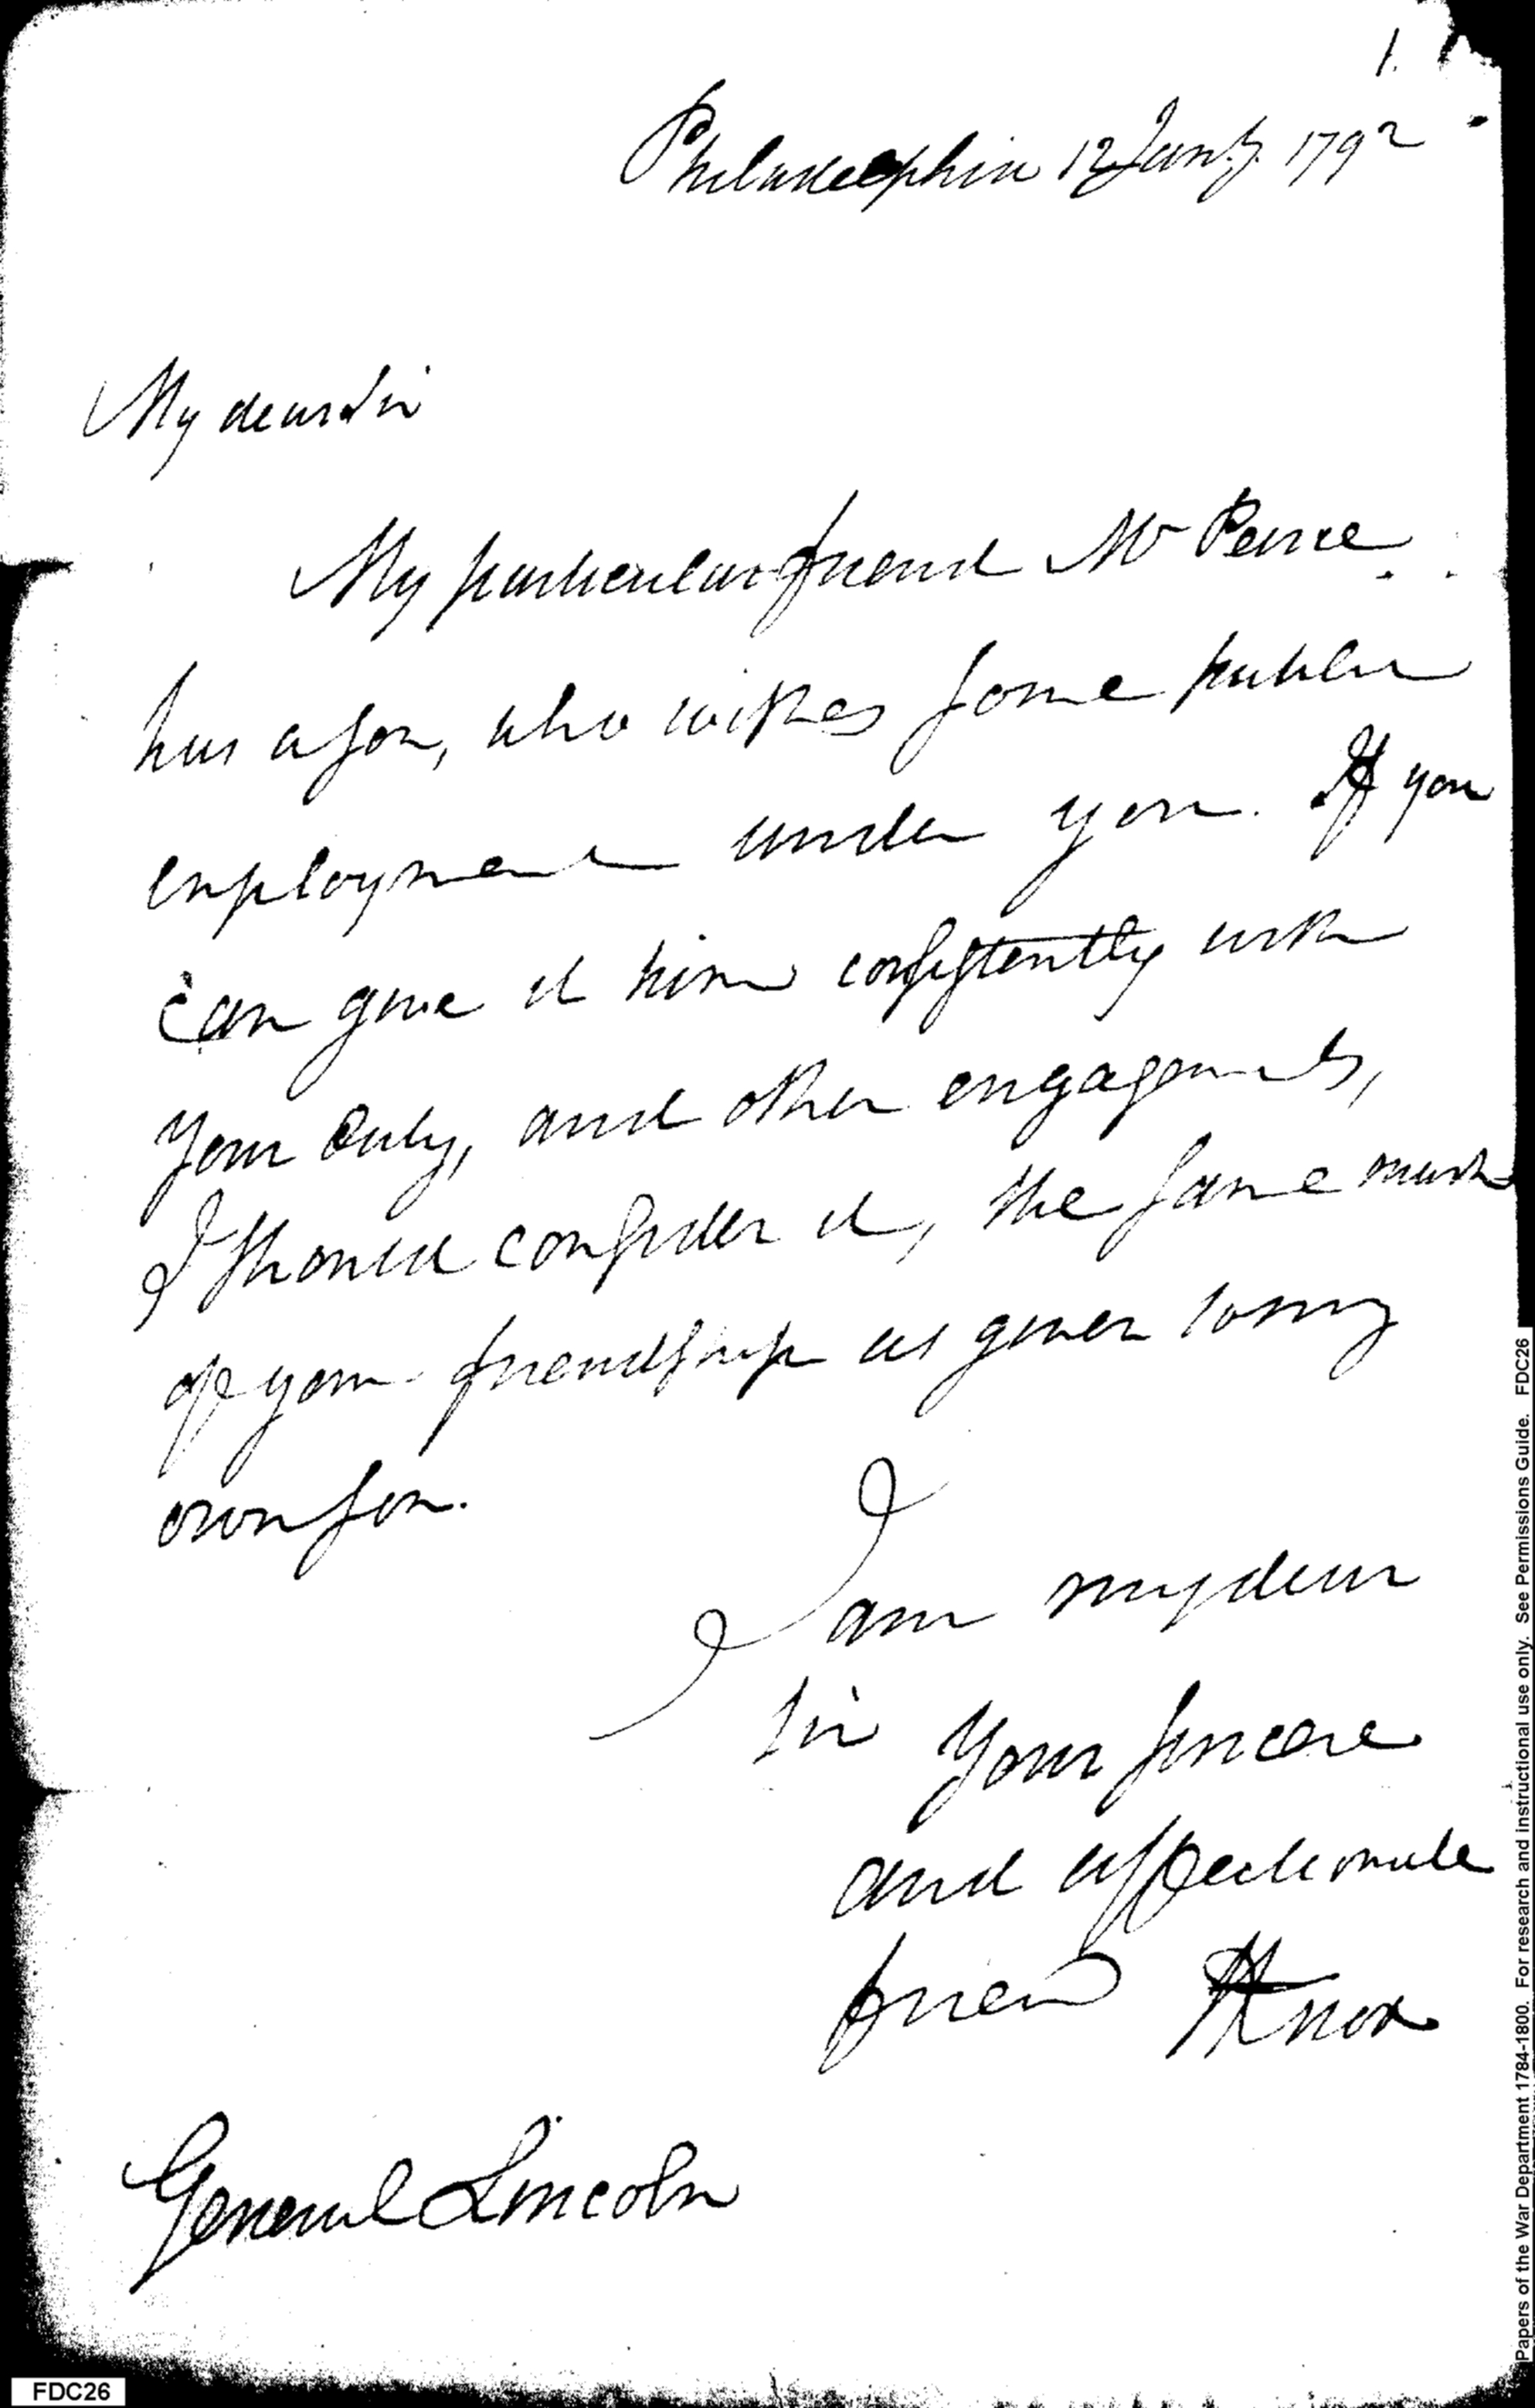 1.
Philadelphia 12 Jany. 1792
My dear sir
My particular friend Mr Peirce
has a son, who wishes some public
employment under you. If you
can give it him consistently with
your duty, and other engagements,
I should consider it, the same mark
of your friendship as given to my
own son.
I am my dear
sir Your sincere
and affectionate
friend HKnox
General Lincoln
FDC26
Papers of the War Department 1784-1800. For research and instructional use only. See Permissions Guide. FDC26